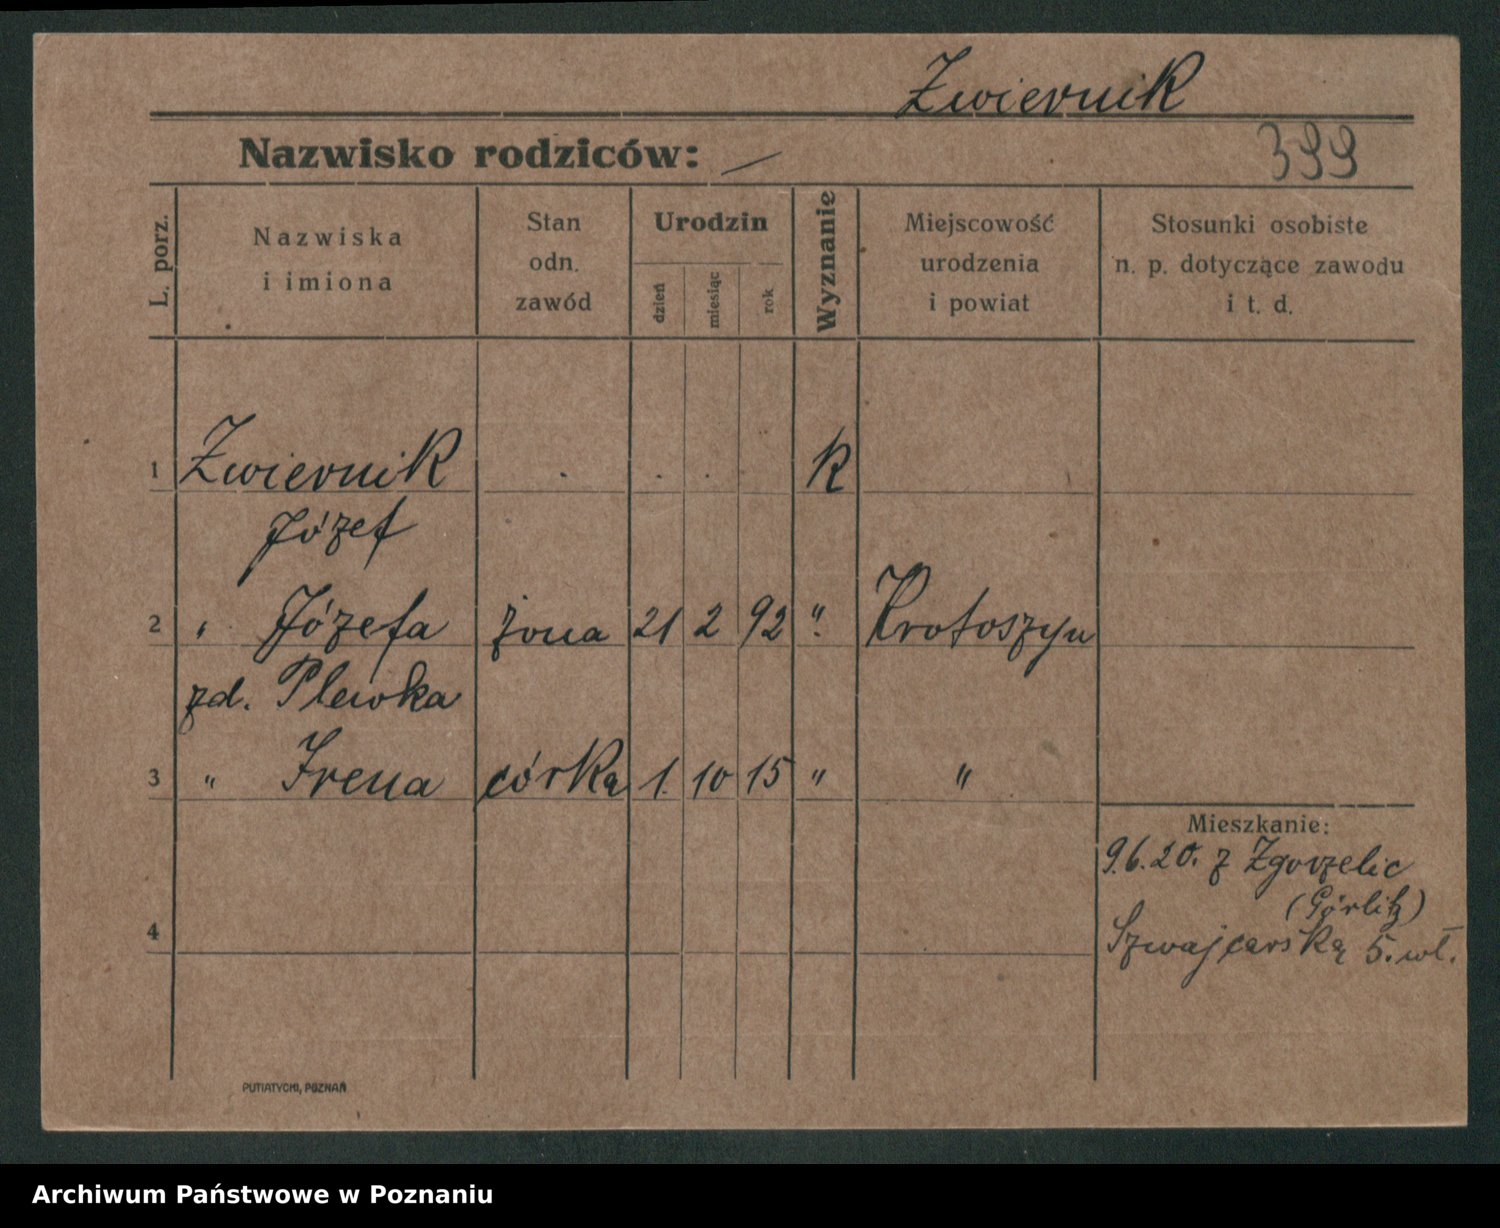 Zwiernik
Nazwisko rodziców: —
399
L. porz.
Nazwiska
i imiona
Stan
odn.
zawód
Urodzin
dzień
miesiąc
rok
Wyznanie
Miejscowość
urodzenia
i powiat
Stosunki osobiste
n. p. dotyczące zawodu
i t. d.
1 Zwiernik . . . k
Józef
2 " Józefa żona 21 2 92 " Krotoszyn
zd. Plewka
3 " Irena córka 1. 10 15 " "
Mieszkanie:
9.6.20. z Zgorzelic
(Görlitz)
4
Szwajcarska 5. wł.
PUTIATYCKI, POZNAŃ
Archiwum Państwowe w Poznaniu